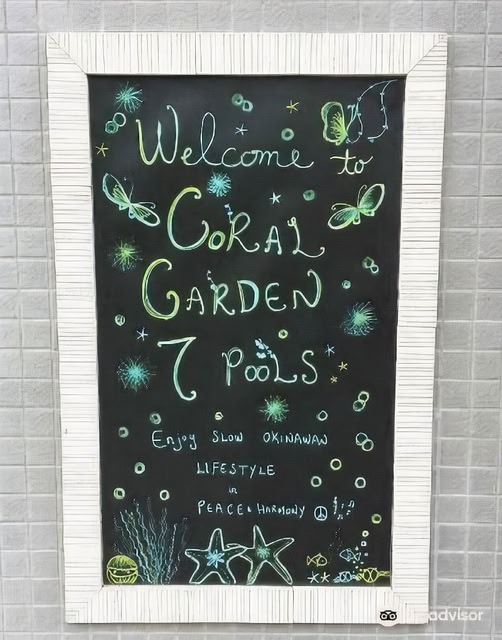 Welcome to
CORAL
GARDEN
7 POOLS
Enjoy SLOW OKINAWAN
LIFESTYLE
in
PEACE & HARMONY
Tripadvisor